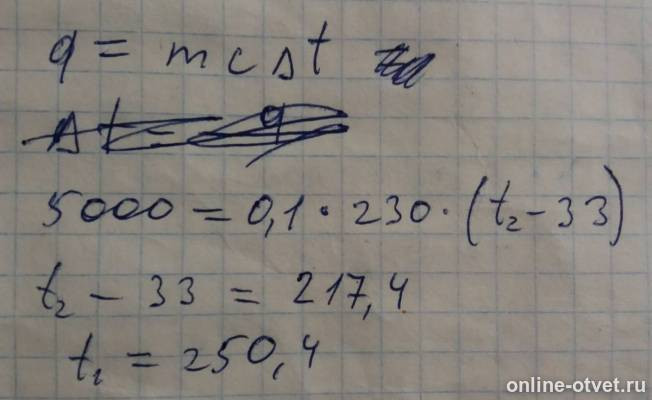 q = mcΔt
Δt = q
5000 = 0,1 · 230 · (t₂ - 33)
t₂ - 33 = 217,4
t₂ = 250,4
online-otvet.ru